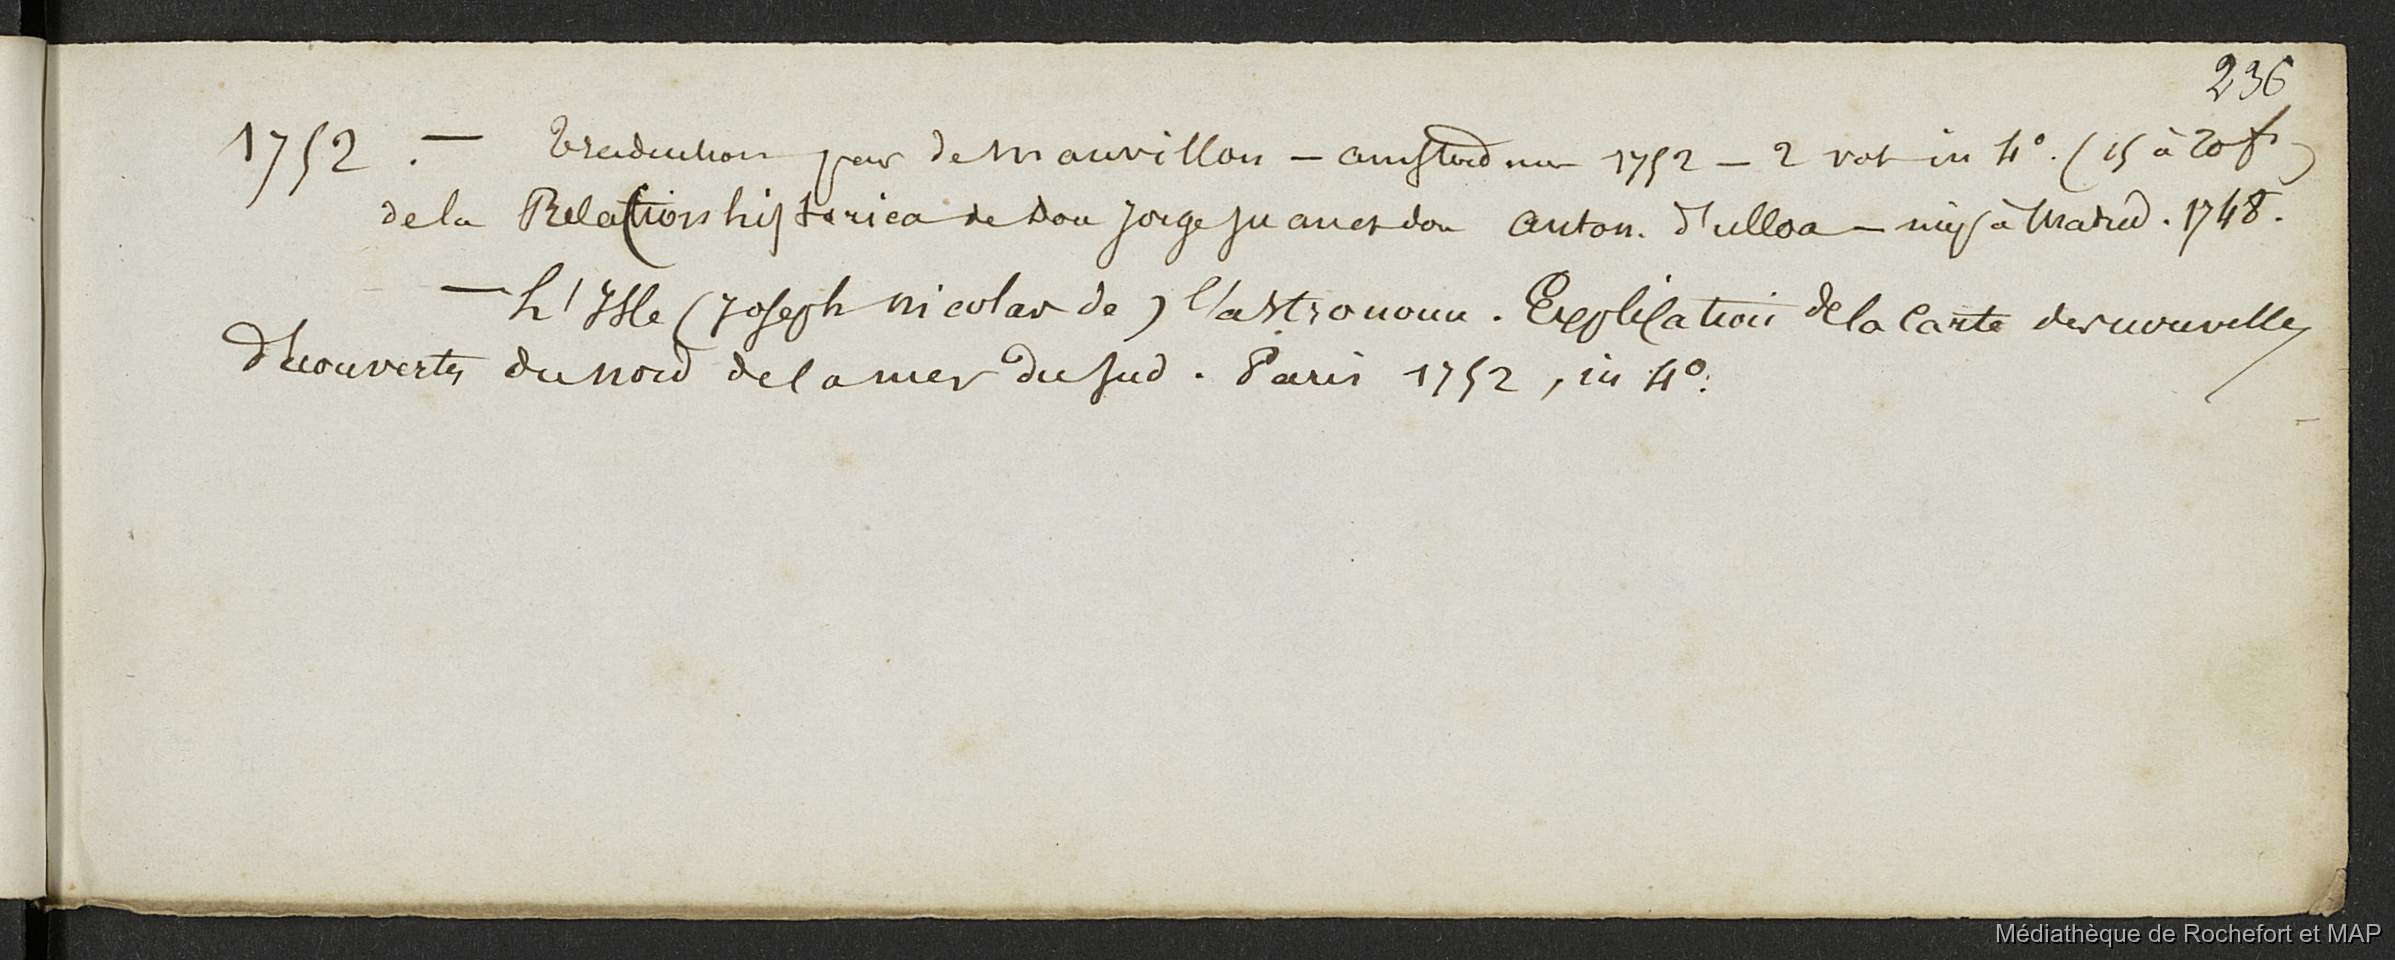 236
1752 . — Traduction par de Mauvillon — amsterdam 1752 — 2 vol in 4°. (15 à 20 f)
de la Relation historica de Don Jorge Juan et don anton. d'ulloa — à Madrid. 1748.
— L'Isle (Joseph Nicolas de) l'astronome. Explication de la Carte des nouvelles
découvertes du nord de la mer du sud. Paris 1752, in 4°.
Médiathèque de Rochefort et MAP